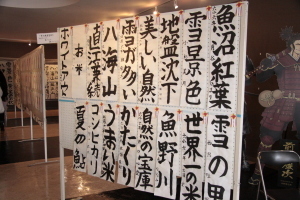 魚沼紅葉
雪景色
地盤沈下
美しい自然
雪が多い
八海山
直江兼続
お米
雪の里
世界一の米
魚野川
自然の宝庫
かたり
うまい米
コシヒカリ
夏の鮎